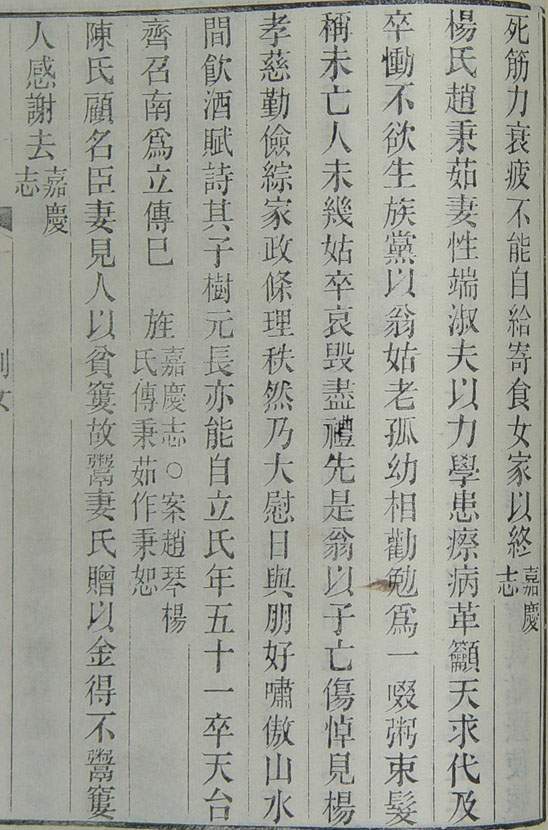 死筋力衰疲不能自給寄食女家以終嘉慶
志
楊氏趙秉茹妻性端淑夫以力學患瘵病革籲天求代及
卒慟不欲生族黨以翁姑老孤幼相勸勉爲一啜粥束髮
稱未亡人未幾姑卒哀毀盡禮先是翁以子亡傷悼見楊
孝慈勤儉綜家政條理秩然乃大慰日與朋好嘯傲山水
間飮酒賦詩其子樹元長亦能自立氏年五十一卒天台
齊召南爲立傳巳 旌嘉慶志○案趙琴楊
氏傳秉茹作秉恕
陳氏顧名臣妻見人以貧窶故鬻妻氏贈以金得不鬻窶
人感謝去嘉慶
志
列女